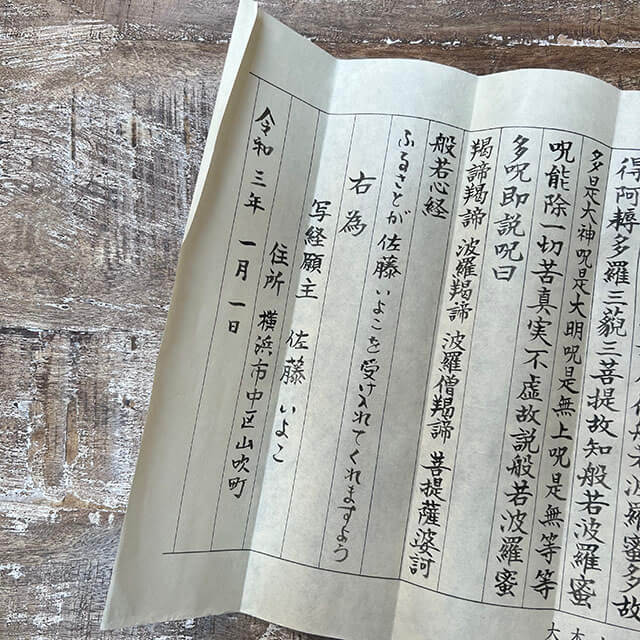 得阿耨多羅三藐三菩提故知般若波羅蜜
多是大神呪是大明呪是無上呪是無等等
呪能除一切苦真実不虚故説般若波羅蜜
多呪即説呪曰
羯諦羯諦 波羅羯諦 波羅僧羯諦 菩提薩婆訶
般若心経
ふるさとが佐藤いよこを受け入れてくれますよう
右為
写経願主 佐藤 いよこ
住所 横浜市中区山吹町
令和三年 一月 一日